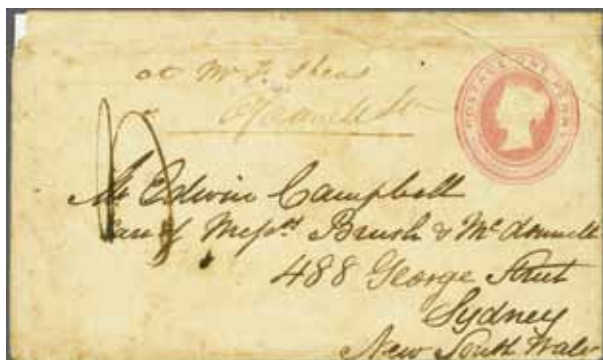 at Mr F. Sheas
O'Connell Str
POSTAGE ONE PENNY
Mr Edwin Campbell
Care of Messrs Brush & McDonnell
488 George Street
Sydney
New South Wales